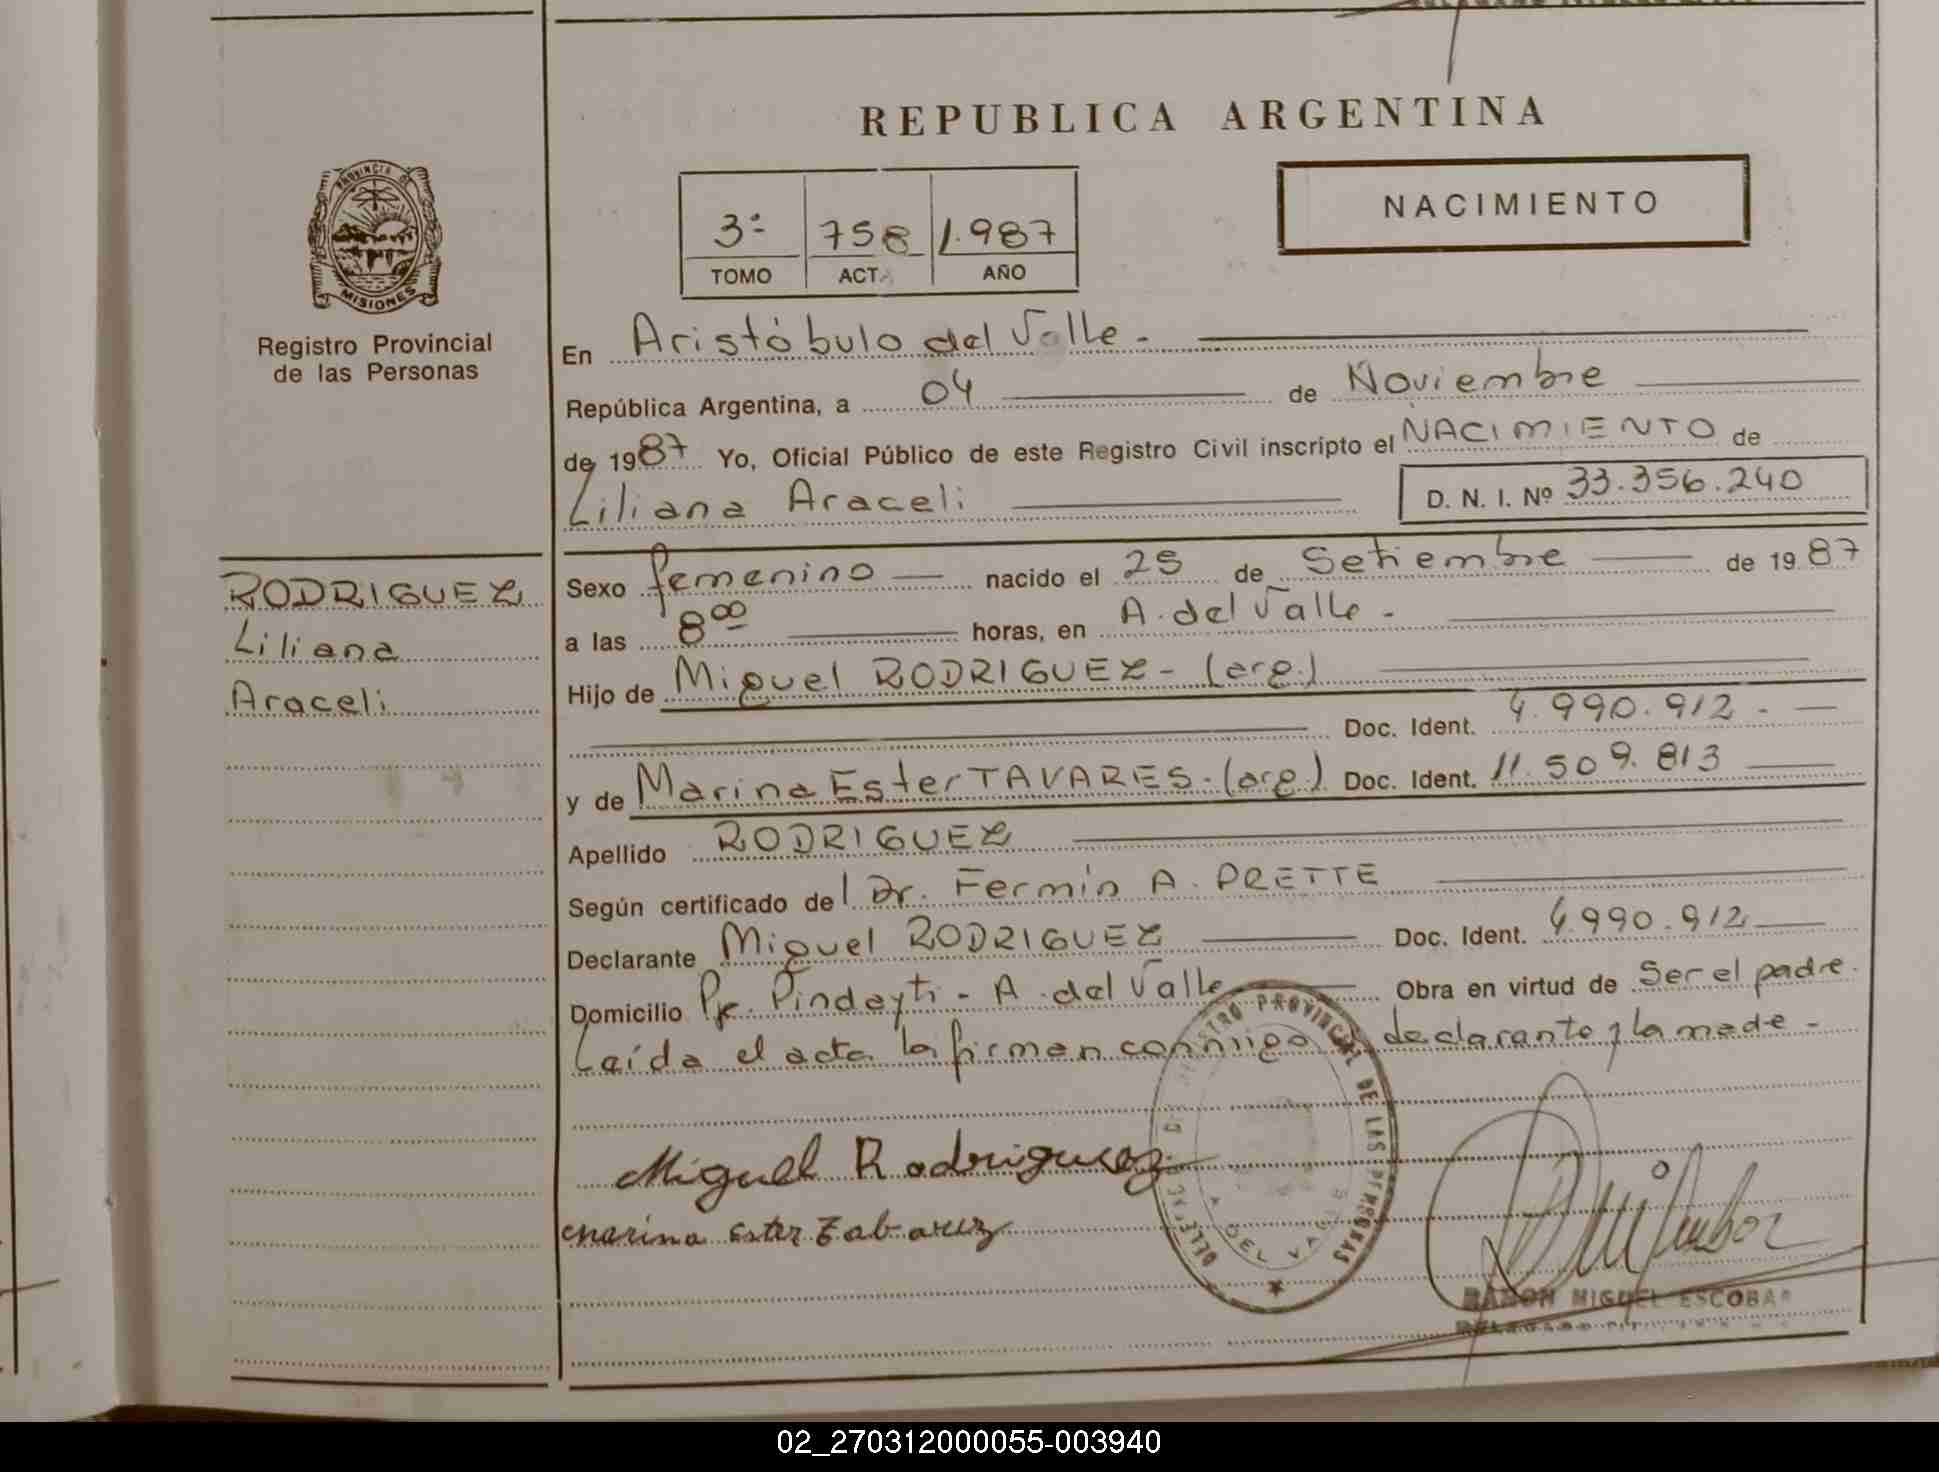 REPUBLICA ARGENTINA
PROVINCIA DE
MISIONES
Registro Provincial
de las Personas
3º 758 1.987
TOMO ACTA AÑO
NACIMIENTO
En Aristóbulo del Valle.
República Argentina, a 04 de Noviembre
de 1987 Yo, Oficial Público de este Registro Civil inscripto el NACIMIENTO de
Liliana Araceli D. N. I. Nº 33.356.240
RODRIGUEZ
Liliana
Araceli
Sexo femenino nacido el 25 de Setiembre de 1987
a las 8 00 horas, en A. del Valle.
Hijo de Miguel RODRIGUEZ - (arg.)
Doc. Ident. 4.990.912.
y de Marina Ester TAVARES. (arg.) Doc. Ident. 11.509.813
Apellido RODRIGUEZ
Según certificado del Dr. Fermín A. PRETTE
Declarante Miguel RODRIGUEZ Doc. Ident. 4.990.912
Domicilio Pje. Pindayti - A. del Valle Obra en virtud de Ser el padre.
Leída el acta la firman conmigo declarante y la madre.
Miguel Rodriguez
marina ester tabarez
REGISTRO PROVINCIAL DE LAS PERSONAS
DEL VALLE
RAMON MIGUEL ESCOBAR
02_270312000055-003940